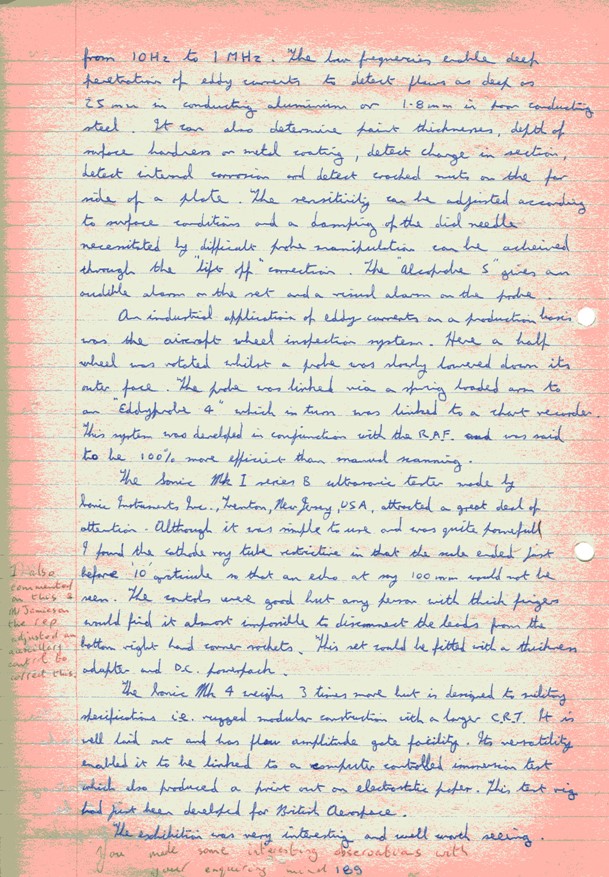 from 10Hz to 1MHz. The low frequencies enable deep
penetration of eddy currents to detect flaws as deep as
25mm in conducting aluminium or 1·8mm in poor conducting
steel. It can also determine paint thicknesses, depth of
surface hardness or metal coating, detect change in section,
detect internal corrosion and detect cracked nuts on the far
side of a plate. The sensitivity can be adjusted according
to surface conditions and a damping of the dial needle
necessitated by difficult probe manipulation can be acheived
through the "lift off" correction. The "Alcoprobe S" gives an
audible alarm on the set and a visual alarm on the probe.
An industrial application of eddy currents on a production basis
was the aircraft wheel inspection system. Here a half
wheel was rotated whilst a probe was slowly lowered down its
outer face. The probe was linked via a spring loaded arm to
an "Eddyprobe 4" which in turn was linked to a chart recorder.
This system was developed in conjunction with the R.A.F. and was said
to be 100% more efficient than manual scanning.
The Sonic Mk I series B ultrasonic tester made by
Sonic Instruments Inc., Trenton, New Jersey, USA, attracted a great deal of
attention. Although it was simple to use and was quite powerfull
I found the cathode ray tube restrictive in that the scale ended just
before '10' graticule so that an echo at say 100mm would not be
seen. The controls were good but any person with thick fingers
would find it almost impossible to disconnect the leads from the
bottom right hand corner sockets. This set could be fitted with a thickness
adapter and D.C. powerpack.
I also
commented
on this &
Mr Jamieson
the rep.
adjusted an
auxiliary
control to
correct this.
The Sonic Mk 4 weighs 3 times more but is designed to military
specifications i.e. rugged modular construction with a larger C.R.T. It is
well laid out and has flaw amplitude gate facility. Its versatility
enabled it to be linked to a computer controlled immersion test
which also produced a print out on electrostatic paper. This test rig
had just been developed for British Aerospace.
The exhibition was very interesting and well worth seeing.
You made some interesting observations with
your enquiring mind 189